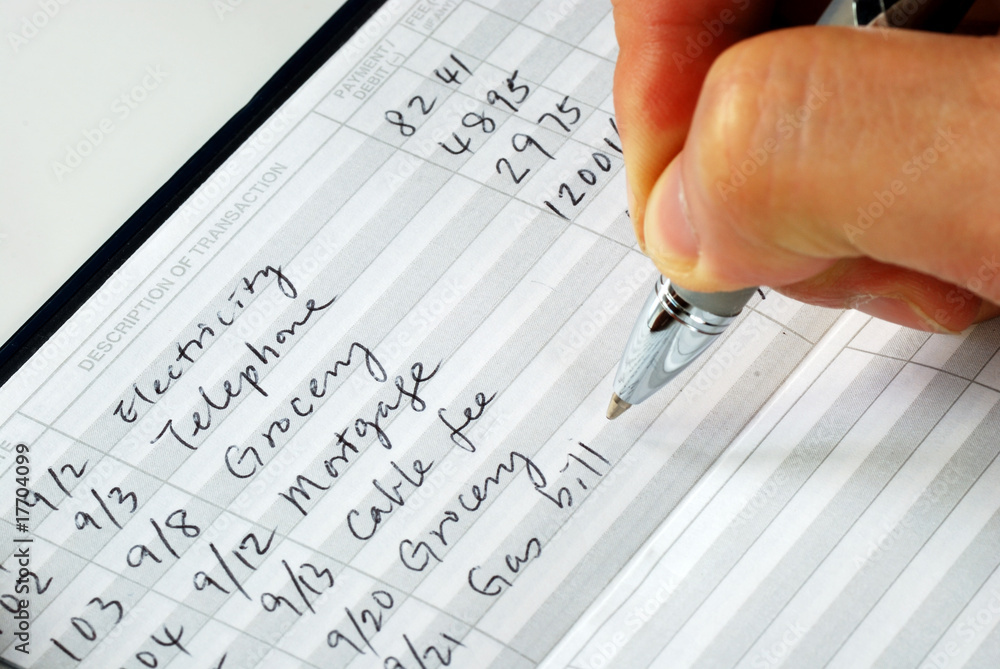 DESCRIPTION OF TRANSACTION PAYMENT / DEBIT (–) FEE (IF ANY)
9/2 Electricity 82 41
9/3 Telephone 48 95
9/8 Grocery 29 75
103 9/12 Mortgage 1200
104 9/13 Cable fee
9/20 Grocery
9/21 Gas bill
Adobe Stock | #17704099